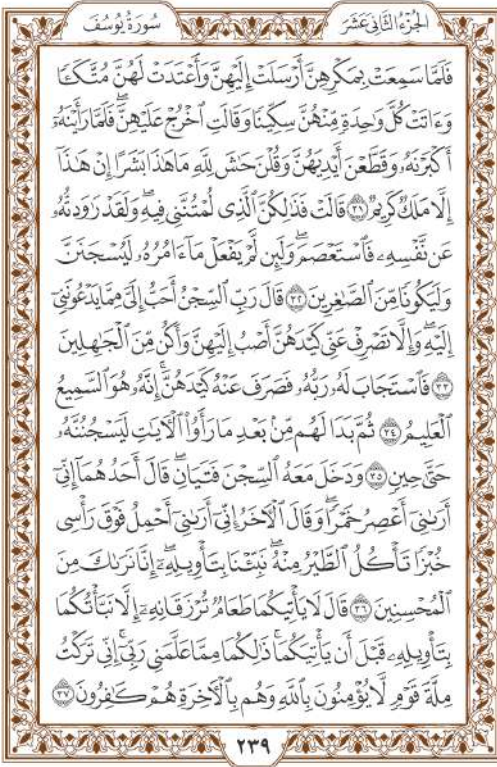 الجزء الثاني عشر
سورة يوسف
فَلَمَّا سَمِعَتْ بِمَكْرِهِنَّ أَرْسَلَتْ إِلَيْهِنَّ وَأَعْتَدَتْ لَهُنَّ مُتَّكَـًٔا
وَءَاتَتْ كُلَّ وَٰحِدَةٍ مِّنْهُنَّ سِكِّينًا وَقَالَتِ ٱخْرُجْ عَلَيْهِنَّۖ فَلَمَّا رَأَيْنَهُۥٓ
أَكْبَرْنَهُۥ وَقَطَّعْنَ أَيْدِيَهُنَّ وَقُلْنَ حَٰشَ لِلَّهِ مَا هَٰذَا بَشَرًا إِنْ هَٰذَآ
إِلَّا مَلَكٌ كَرِيمٌ ٣١ قَالَتْ فَذَٰلِكُنَّ ٱلَّذِى لُمْتُنَّنِى فِيهِۖ وَلَقَدْ رَٰوَدتُّهُۥ
عَن نَّفْسِهِۦ فَٱسْتَعْصَمَۖ وَلَئِن لَّمْ يَفْعَلْ مَآ ءَامُرُهُۥ لَيُسْجَنَنَّ
وَلَيَكُونًا مِّنَ ٱلصَّٰغِرِينَ ٣٢ قَالَ رَبِّ ٱلسِّجْنُ أَحَبُّ إِلَىَّ مِمَّا يَدْعُونَنِىٓ
إِلَيْهِۖ وَإِلَّا تَصْرِفْ عَنِّى كَيْدَهُنَّ أَصْبُ إِلَيْهِنَّ وَأَكُن مِّنَ ٱلْجَٰهِلِينَ
٣٣ فَٱسْتَجَابَ لَهُۥ رَبُّهُۥ فَصَرَفَ عَنْهُ كَيْدَهُنَّۚ إِنَّهُۥ هُوَ ٱلسَّمِيعُ
ٱلْعَلِيمُ ٣٤ ثُمَّ بَدَا لَهُم مِّنۢ بَعْدِ مَا رَأَوُا۟ ٱلْءَايَٰتِ لَيَسْجُنُنَّهُۥ
حَتَّىٰ حِينٍ ٣٥ وَدَخَلَ مَعَهُ ٱلسِّجْنَ فَتَيَانِۖ قَالَ أَحَدُهُمَآ إِنِّىٓ
أَرَىٰنِىٓ أَعْصِرُ خَمْرًاۖ وَقَالَ ٱلْءَاخَرُ إِنِّىٓ أَرَىٰنِىٓ أَحْمِلُ فَوْقَ رَأْسِى
خُبْزًا تَأْكُلُ ٱلطَّيْرُ مِنْهُۖ نَبِّئْنَا بِتَأْوِيلِهِۦٓۖ إِنَّا نَرَىٰكَ مِنَ
ٱلْمُحْسِنِينَ ٣٦ قَالَ لَا يَأْتِيكُمَا طَعَامٌ تُرْزَقَانِهِۦٓ إِلَّا نَبَّأْتُكُمَا
بِتَأْوِيلِهِۦ قَبْلَ أَن يَأْتِيَكُمَاۚ ذَٰلِكُمَا مِمَّا عَلَّمَنِى رَبِّىٓۚ إِنِّى تَرَكْتُ
مِلَّةَ قَوْمٍ لَّا يُؤْمِنُونَ بِٱللَّهِ وَهُم بِٱلْءَاخِرَةِ هُمْ كَٰفِرُونَ ٣٧
٢٣٩